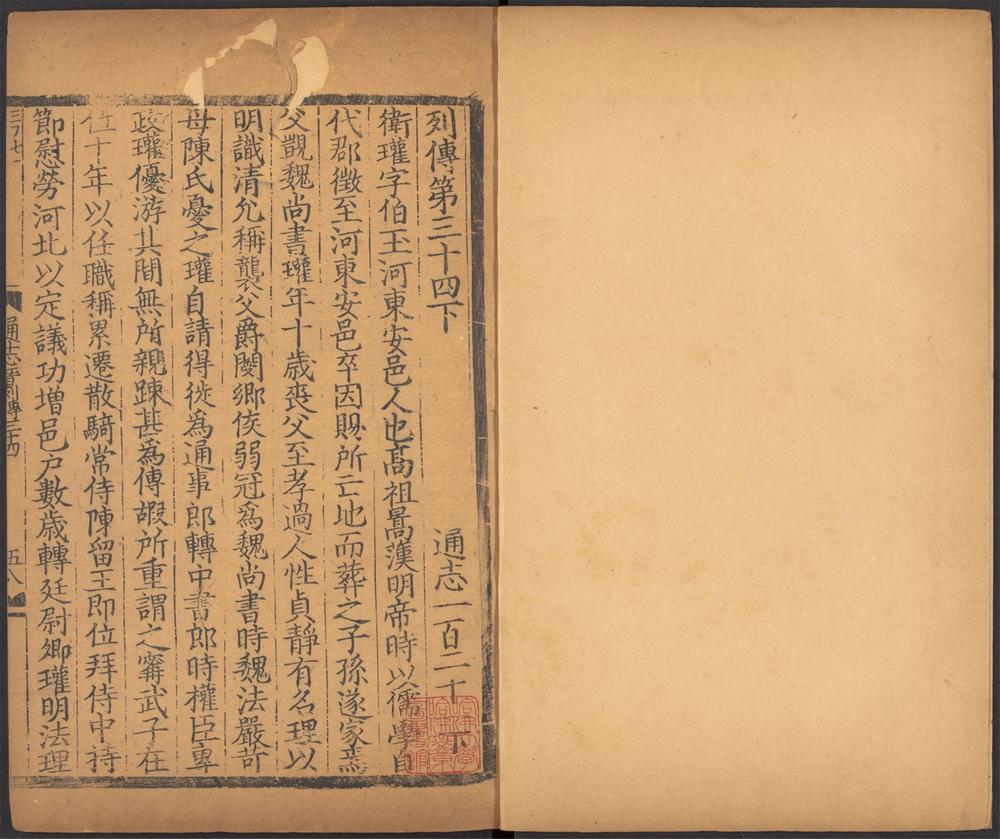 列傳第三十四下　通志一百二十下
衛瓘字伯玉河東安邑人也高祖暠漢明帝時以儒學自
代郡徵至河東安邑卒因賜所亡地而葬之子孫遂家焉
父覬魏尚書瓘年十歲喪父至孝過人性貞靜有名理以
明識清允稱襲父爵閿鄉侯弱冠爲魏尚書時魏法嚴苛
母陳氏憂之瓘自請得徙爲通事郎轉中書郎時權臣專
政瓘優游其間無所親踈甚爲傅嘏所重謂之甯武子在
位十年以任職稱累遷散騎常侍陳留王即位拜侍中持
節慰勞河北以定議功增邑户數歲轉廷尉卿瓘明法理
通志晉列傳三十四
五八